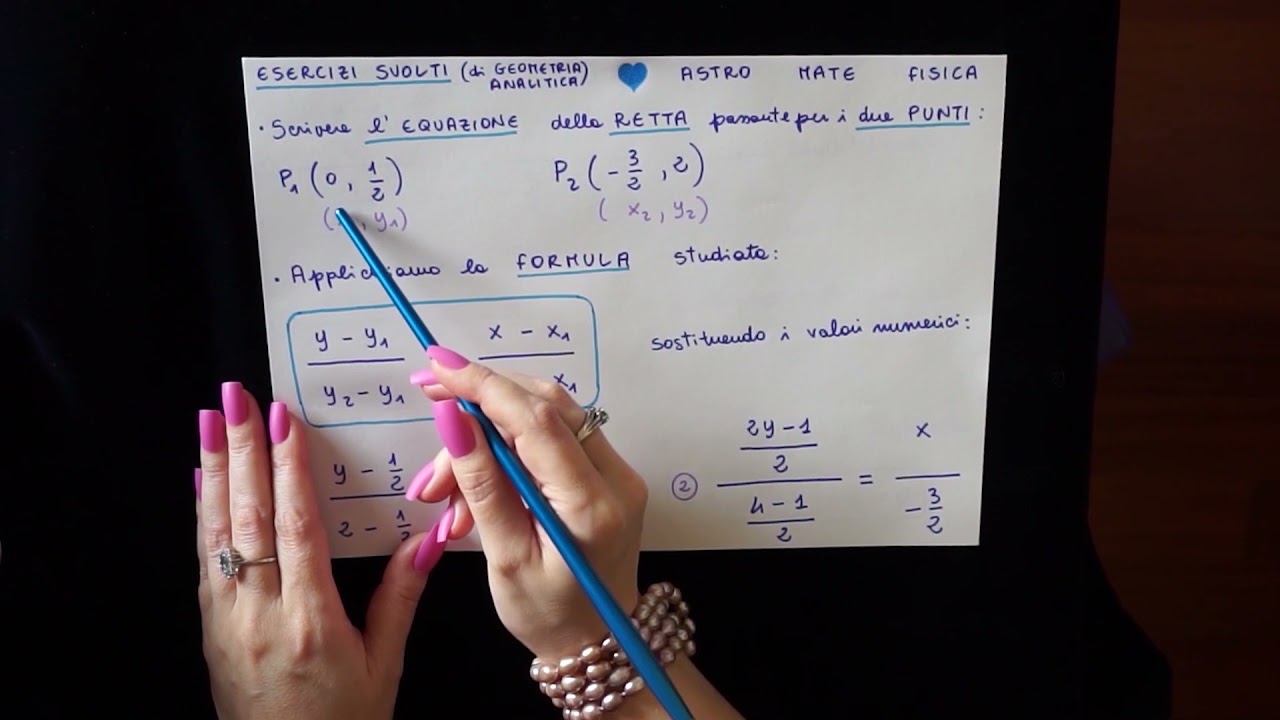 ESERCIZI SVOLTI (di GEOMETRIA ANALITICA) ASTRO MATE FISICA
· Scrivere l'EQUAZIONE della RETTA passante per i due PUNTI:
P₁ (0, 1/2) P₂ (-3/2, 2)
( , y₁) ( x₂, y₂)
· Applichiamo la FORMULA studiata:
y - y₁ x - x₁
y₂ - y₁ x₁
sostituendo i valori numerici:
y - 1/2
2 - 1/2
② (2y-1)/2 = x
(4-1)/2 -3/2